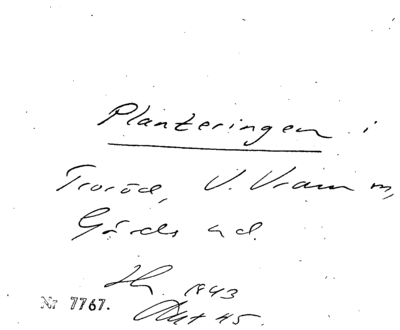 Planteringen i
Troröd, V. Vram m,
Gärds hd.
1843
Nr 7767.